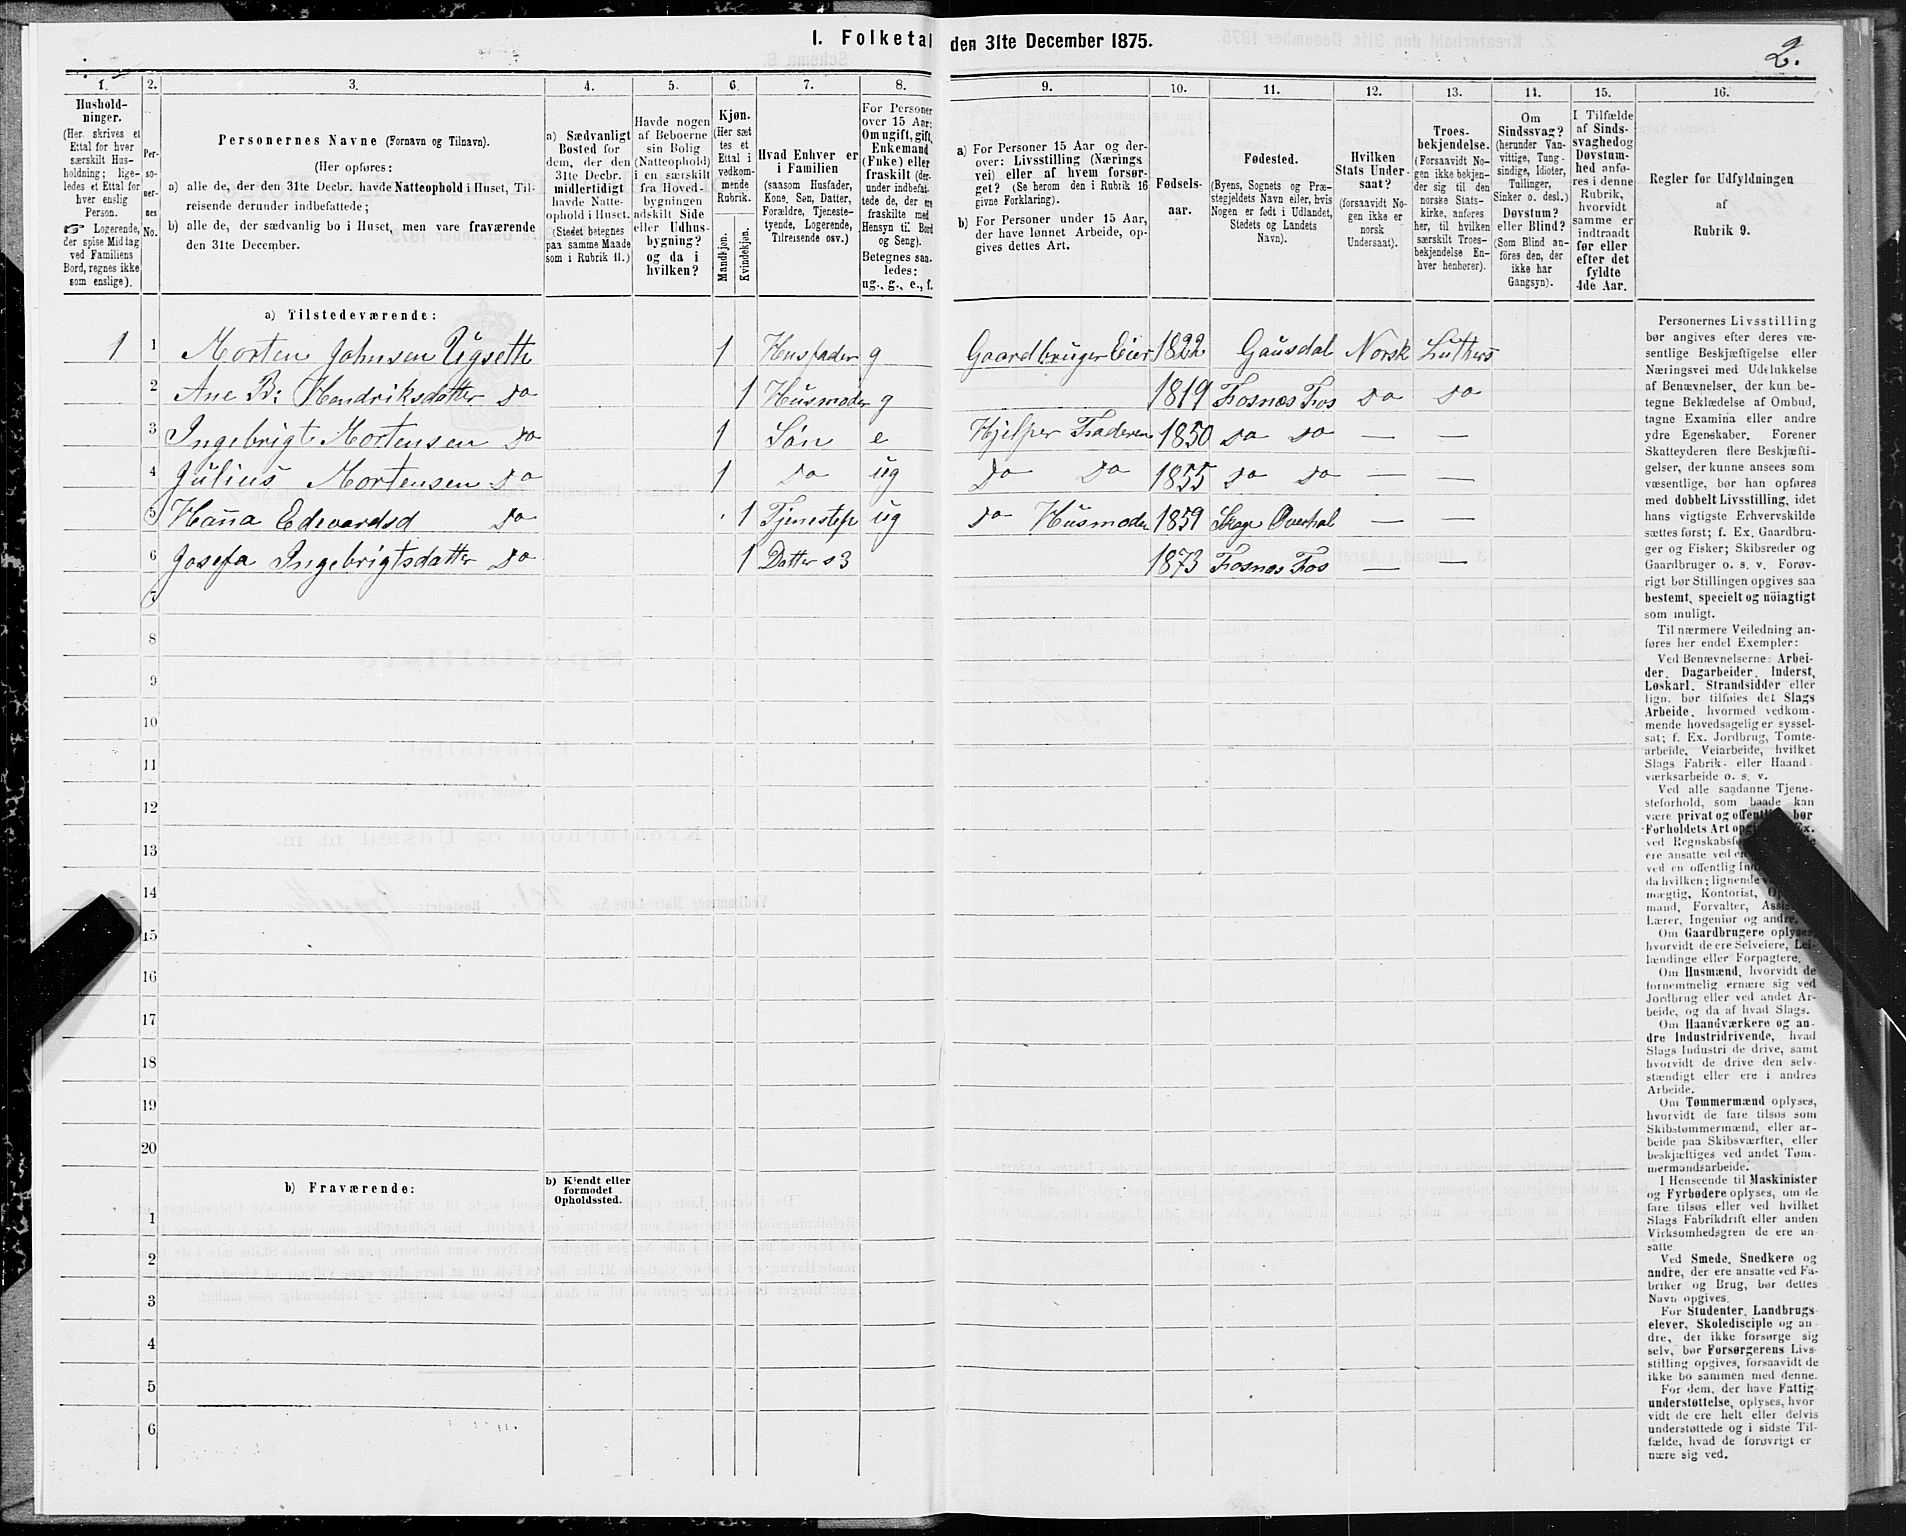 I. Folketal den 31te December 1875.
2.
1.
2.
3.
4.
5.
6.
7.
8.
9.
10.
11.
12.
13.
14.
15.
16.
Hushold-
ninger.
(Her skrives et
Ettal for hver
særskilt Hus-
holdning; lige-
ledes et Ettal for
hver enslig
Person.
☞ Logerende,
der spise Middag
ved Familiens
Bord, regnes ikke
som enslige).
Per-
so-
ner-
nes
No.
Personernes Navne (Fornavn og Tilnavn).
(Her opføres:
a) alle de, der den 31te Decbr. havde Natteophold i Huset, Til-
reisende derunder indbefattede;
b) alle de, der sædvanlig bo i Huset, men vare fraværende
den 31te December.
a) Sædvanligt
Bosted for
dem, der den
31te Decbr.
midlertidigt
havde Natte-
ophold i Huset.
(Stedet betegnes
paa samme Maade
som i Rubrik 11.)
Havde nogen
af Beboerne
sin Bolig
(Natteophold)
i en særskilt
fra Hoved-
bygningen
adskilt Side
eller Udhus-
bygning?
og da i
hvilken?
Kjøn.
(Her sæt-
tes et
Ettal i
vedkom-
mende
Rubrik.
Mandkjøn.
Kvindekjøn.
Hvad Enhver er
i Familien
(saasom Husfader,
Kone, Søn, Datter,
Forældre, Tjeneste-
tyende, Logerende,
Tilreisende osv.)
For Personer
over 15 Aar:
Om ugift, gift,
Enkemand
(Enke) eller
fraskilt (der-
under indbefat-
tede de, der ere
fraskilte med
Hensyn til Bord
og Seng).
Betegnes saa-
ledes:
ug., g., e., f.
a) For Personer 15 Aar og der-
over: Livsstilling (Nærings-
vei) eller af hvem forsør-
get? (Se herom den i Rubrik 16
givne Forklaring).
b) For Personer under 15 Aar,
der have lønnet Arbeide, op-
gives dettes Art.
Fødsels-
aar.
Fødested.
(Byens, Sognets og Præ-
stegjeldets Navn eller, hvis
Nogen er født i Udlandet,
Stedets og Landets
Navn).
Hvilken
Stats Under-
saat?
(forsaavidt No-
gen ikke er
norsk
Undersaat).
Troes-
bekjendelse.
(Forsaavidt No-
gen ikke bekjen-
der sig til den
norske Stats-
kirke, anføres
her, til hvilken
særskilt Troes-
bekjendelse En-
hver henhører).
Om
Sindssvag?
(herunder Van-
vittige, Tung-
sindige, Idioter,
Tullinger,
Sinker o. desl.)
Døvstum?
eller Blind?
(Som Blind an-
føres den, der
ikke har
Gangsyn).
I Tilfælde
af Sinds-
svaghed og
Døvstum-
hed anfø-
res i denne
Rubrik,
hvorvidt
samme er
indtraadt
før eller
efter det
fyldte
4de Aar.
Regler for Udfyldningen
af
Rubrik 9.
a) Tilstedeværende:
1 1 Morten Johnsen Ugseth 1 Husfader g Gaardbruger Eier 1822 Gausdal Norsk Luthers
2 Ane B: Hendriksdatter do 1 Husmoder g 1819 Fosnæs Fos do do
3 Ingebrigt Mortensen do 1 Søn e Hjelper Faderen 1850 do do — —
4 Julius Mortensen do 1 do ug do do 1855 do do — —
5 Hanna Edevardsd do 1 Tjenestep ug do Husmoder 1859 Skage Overhal — —
6 Josefa Ingebrigtsdatter do 1 Datter s 3 1873 Fosnæs Fos — —
7
8
9
10
11
12
13
14
15
16
17
18
19
20
b) Fraværende:
b) Kjendt eller
formodet
Opholdssted.
1
2
3
4
5
6
Personernes Livsstilling
bør angives efter deres væ-
sentlige Beskjæftigelse eller
Næringsvei med Udelukkelse
af Benævnelser, der kun be-
tegne Beklædelse af Ombud,
tagne Examina eller andre
ydre Egenskaber. Forener
Skatteyderen flere Beskjæfti-
gelser, der kunne ansees som
væsentlige, bør han opføres
med dobbelt Livsstilling, idet
hans vigtigste Erhvervskilde
sættes først; f. Ex. Gaardbru-
ger og Fisker; Skibsreder og
Gaardbruger o. s. v. Forøv-
rigt bør Stillingen opgives saa
bestemt, specielt og nöiagtigt
som muligt.
Til nærmere Veiledning an-
føres her endel Exempler:
Ved Benævnelserne: Arbei-
der, Dagarbeider, Inderst,
Løskarl, Strandsidder eller
lign. bør tilføies det Slags
Arbeide, hvormed vedkom-
mende hovedsagelig er syssel-
sat; f. Ex. Jordbrug, Tomte-
arbeide, Veiarbeide, hvilket
Slags Fabrik- eller Haand-
værksarbeide o. s. v.
Ved alle saadanne Tjene-
steforhold, som baade kan
være privat og offentlig, bør
Forholdets Art
ved
ere ansatte ved
ved en offentlig
da hvilken; lignende
mægtig, Kontorist,
mand, Forvalter,
Lærer, Ingeniør og andre.
Om Gaardbrugere oplyses,
hvorvidt de ere Selveiere, Lei-
lændinge eller Forpagtere.
Om Husmænd, hvorvidt de
fornemmelig ernære sig ved
Jordbrug eller ved andet Ar-
beide, og da af hvad Slags.
Om Haandværkere og an-
dre Industridrivende, hvad
Slags Industri de drive, samt
hvorvidt de drive den selv-
stændigt eller ere i andres
Arbeide.
Om Tømmermænd oplyses,
hvorvidt de fare tilsøs som
Skibstømmermænd, eller ar-
beide paa Skibsværfter, eller
beskjæftiges ved andet Tøm-
mermandsarbeide.
I Henseende til Maskinister
og Fyrbødere oplyses, om de
fare tilsøs eller ved hvilket
Slags Fabrikdrift eller anden
Virksomhedsgren de ere an-
satte
Ved Smede, Snedkere og
andre, der ere ansatte ved Fa-
briker og Brug, bør dettes
Navn opgives.
For Studenter, Landbrugs-
elever, Skoledisciple og an-
dre, der ikke forsørge sig
selv, bør Forsørgerens Livs-
stilling opgives, forsaavidt de
ikke bo sammen med denne.
For dem, der have Fattig-
understøttelse, oplyses, hvor-
vidt de ere helt eller delvis
understøttede og i sidste Til-
fælde, hvad de forøvrigt er-
nære sig ved.